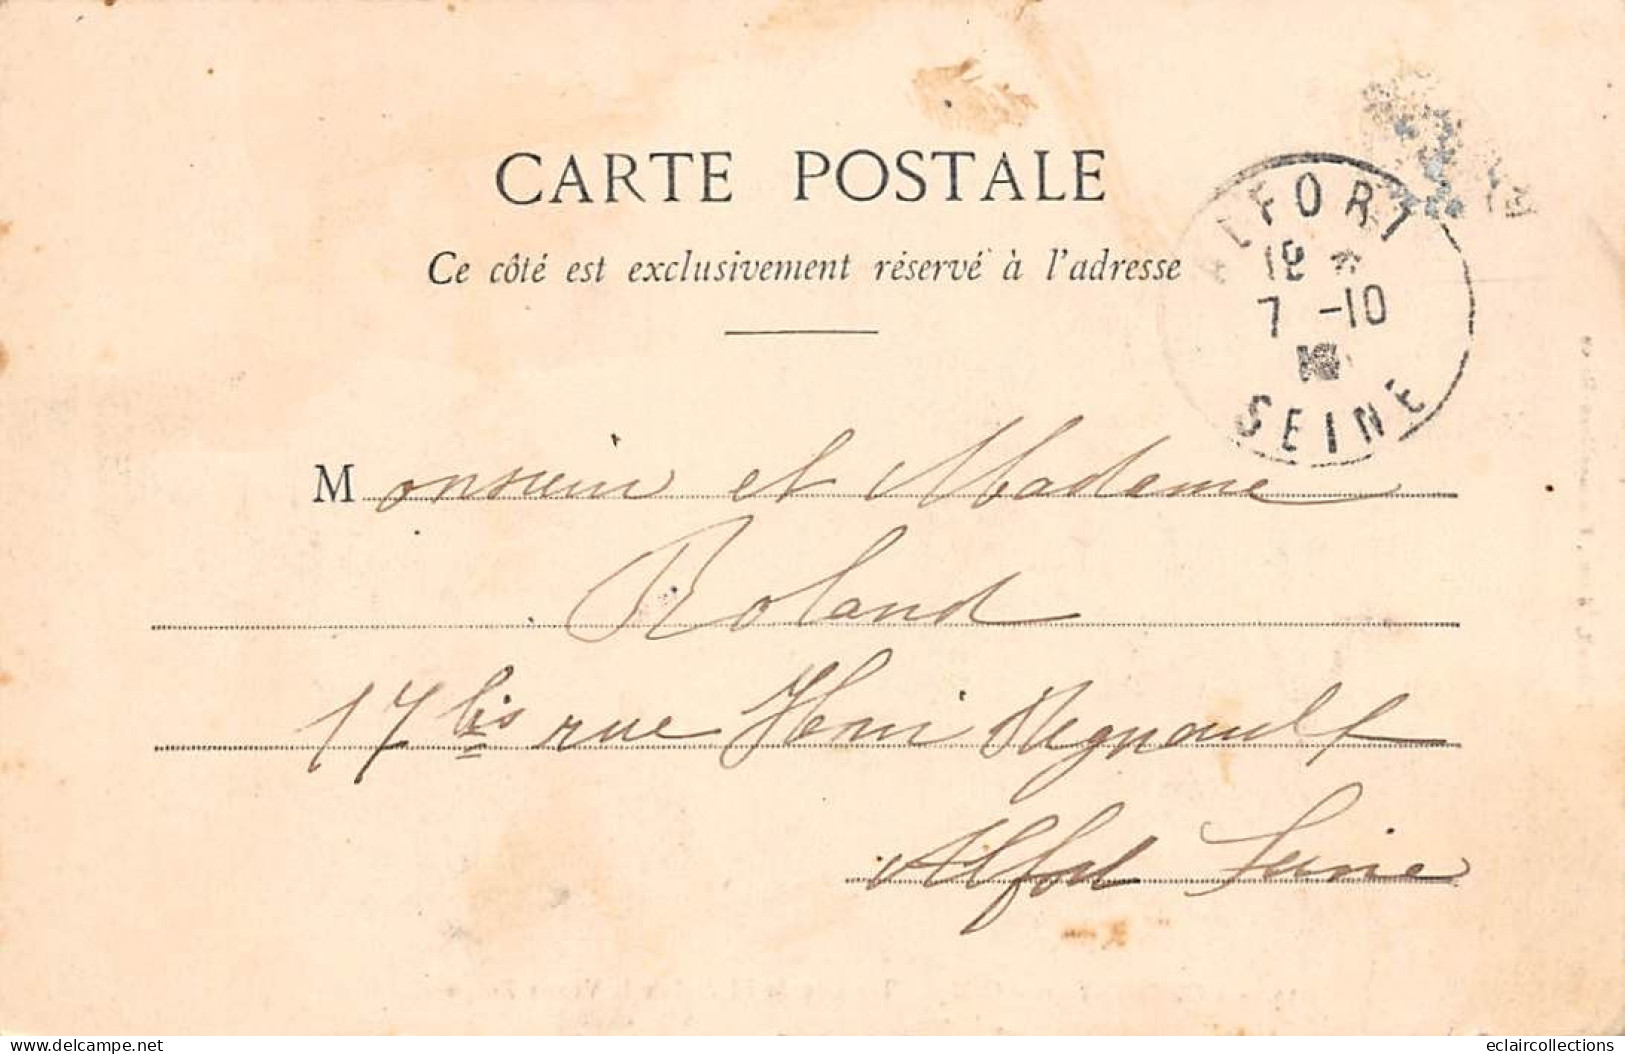 CARTE POSTALE
Ce côté est exclusivement réservé à l'adresse
ALFORT
12 *
7 -10
SEINE
Monsieur et Madame
Roland
17 bis rue Henri Regnault
Alfort Seine
delcampe.net
eclaircollections